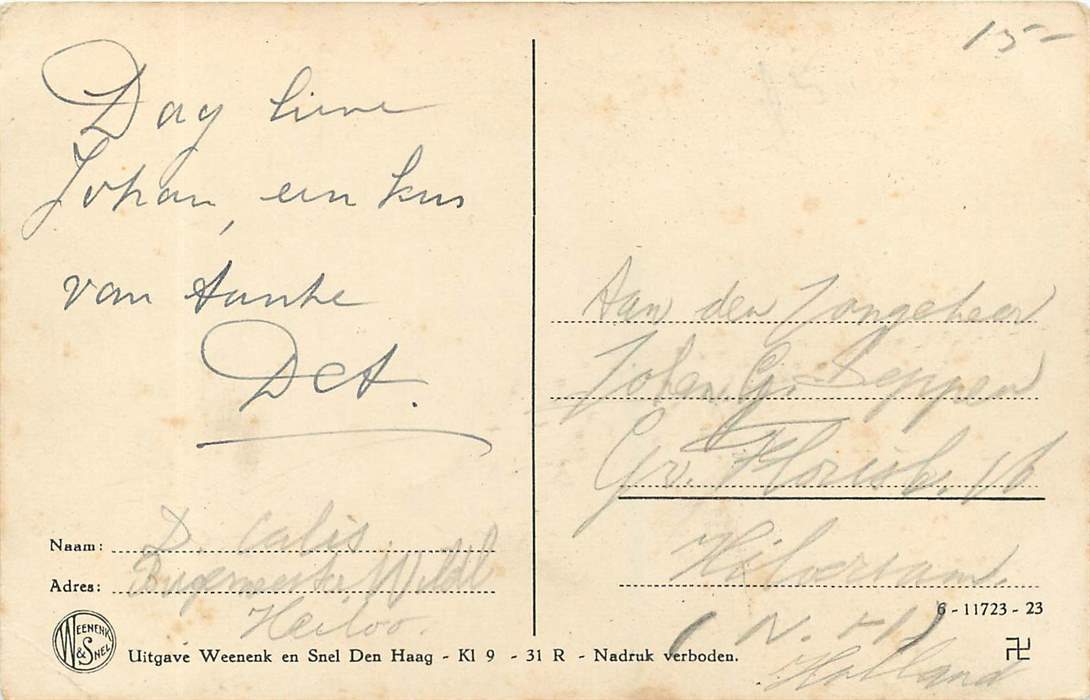 15-
Dag lieve
Johan, een kus
van tante
Det.
Aan den Jongeheer
Johan. G. Seppen
Gr. Florisl. 16
Hilversum.
(N. H)
Holland
Naam: D. Calis
Adres: Burgemeester
Heiloo.
6 - 11723 - 23
WEENENK & SNEL
Uitgave Weenenk en Snel Den Haag - Kl 9 - 31 R - Nadruk verboden.